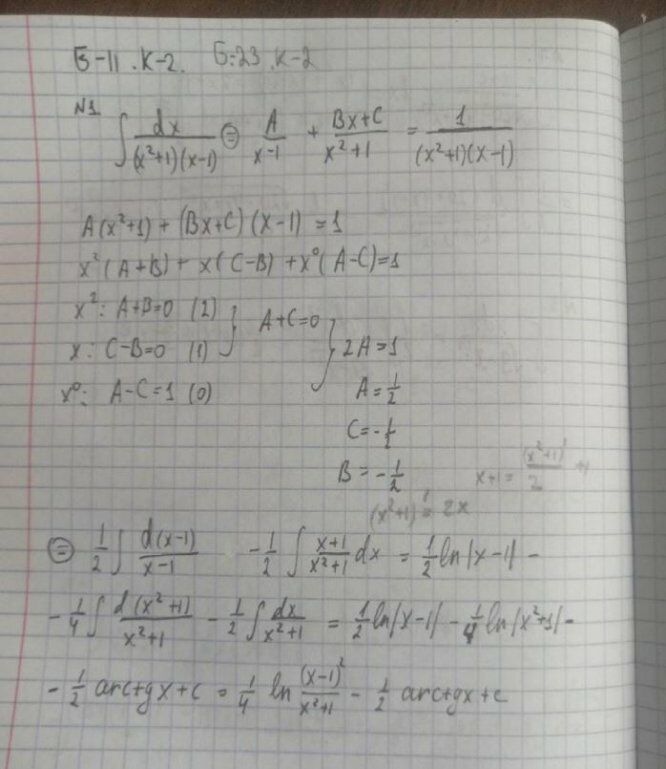 Б-11. К-2. Б-23. К-2
N1 ∫ dx/((x²+1)(x-1)) ⊜ A/(x-1) + (Bx+C)/(x²+1) = 1/((x²+1)(x-1))
A(x²+1) + (Bx+C)(x-1) = 1
x²(A+B) + x(C-B) + x⁰(A-C)=1
x²: A+B=0 (2)
A+C=0
x: C-B=0 (1)
2A=1
x⁰: A-C=1 (0)
A=1/2
C=-1/2
B=-1/2
x+1 = (x²+1)'/2 +1
(x²+1)' = 2x
⊜ 1/2 ∫ d(x-1)/(x-1) - 1/2 ∫ (x+1)/(x²+1) dx = 1/2 ln|x-1| -
- 1/4 ∫ d(x²+1)/(x²+1) - 1/2 ∫ dx/(x²+1) = 1/2 ln|x-1| - 1/4 ln|x²+1| -
- 1/2 arctgx+c = 1/4 ln (x-1)²/(x²+1) - 1/2 arctgx+c